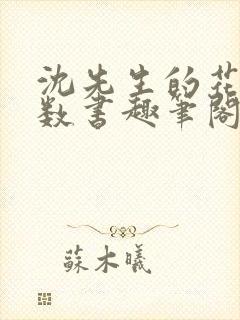 沈先生的花
数书趣笔阁
蘇木曦